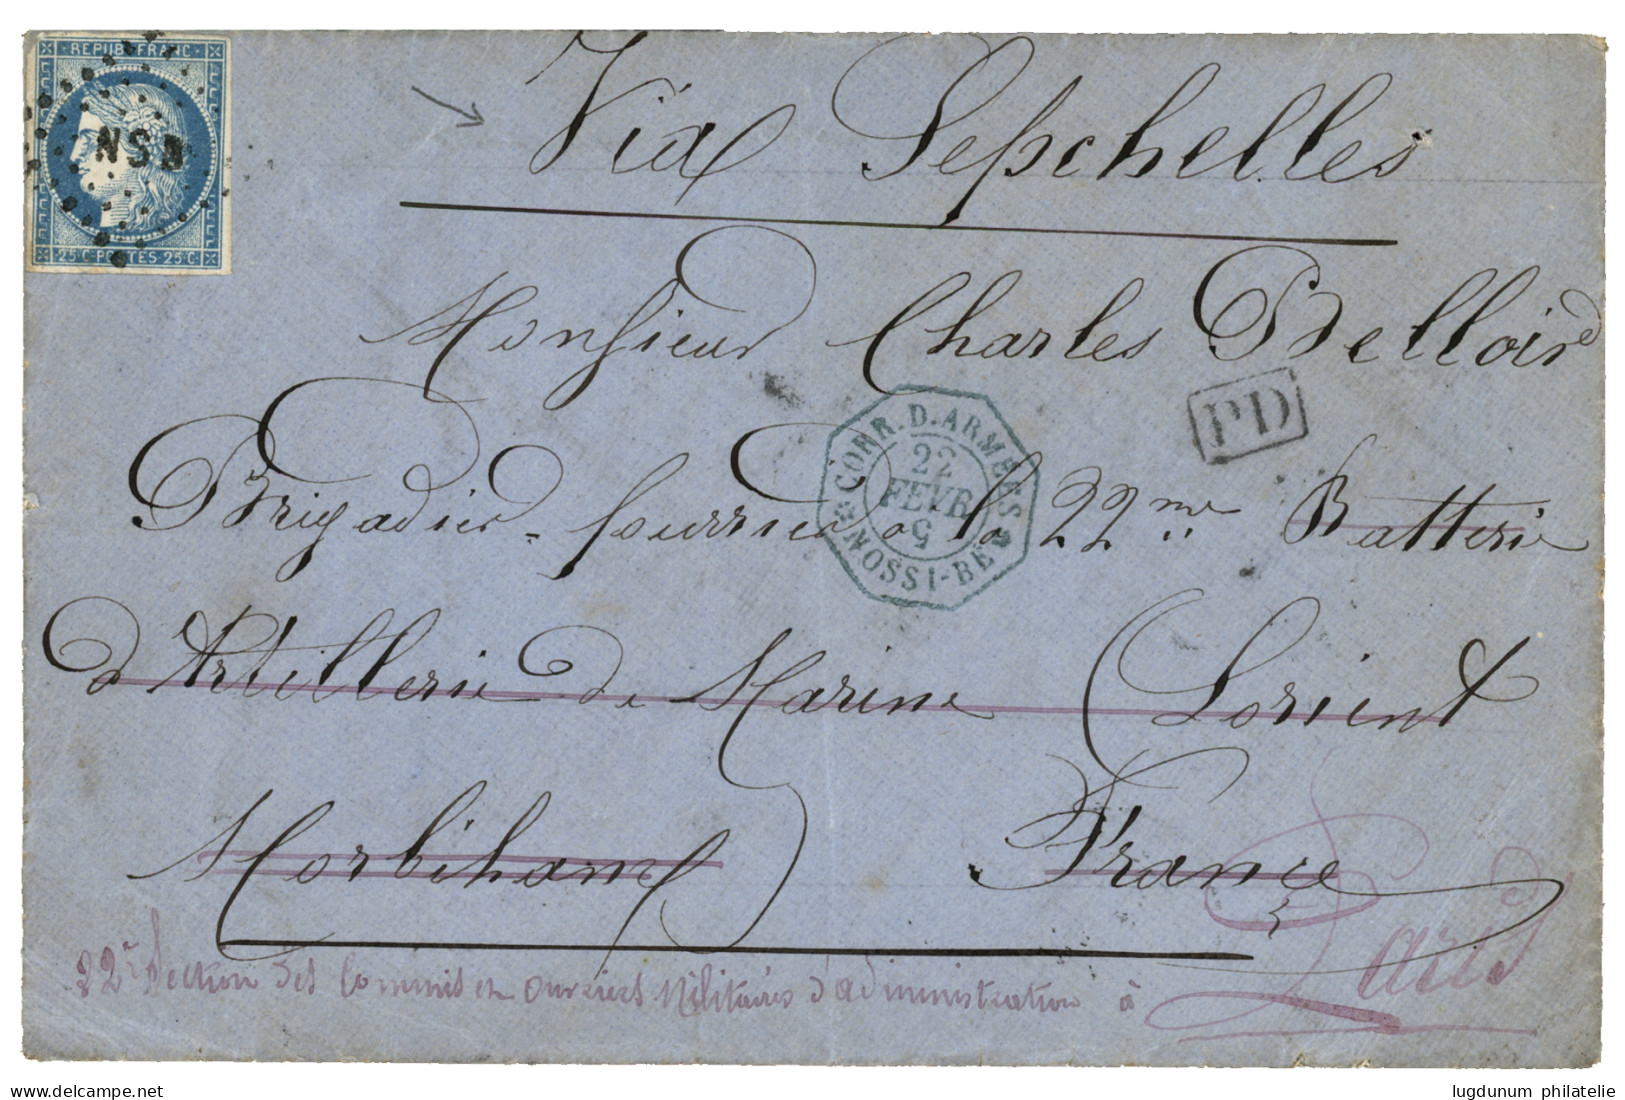 REPUB. FRANC.
NSB
25 C. POSTES 25 C.
Via Seychelles
Monsieur Charles Belloir
PD
CORR. D. ARMÉES
22
FEVR
5
NOSSI-BÉ
Brigadier-fourrier à la 22me Batterie
d'Artillerie de Marine (Lorient
Morbihan) France
22e Section des Commis et Ouvriers Militaires d'administration à Paris
www.delcampe.net
lugdunum philatelie